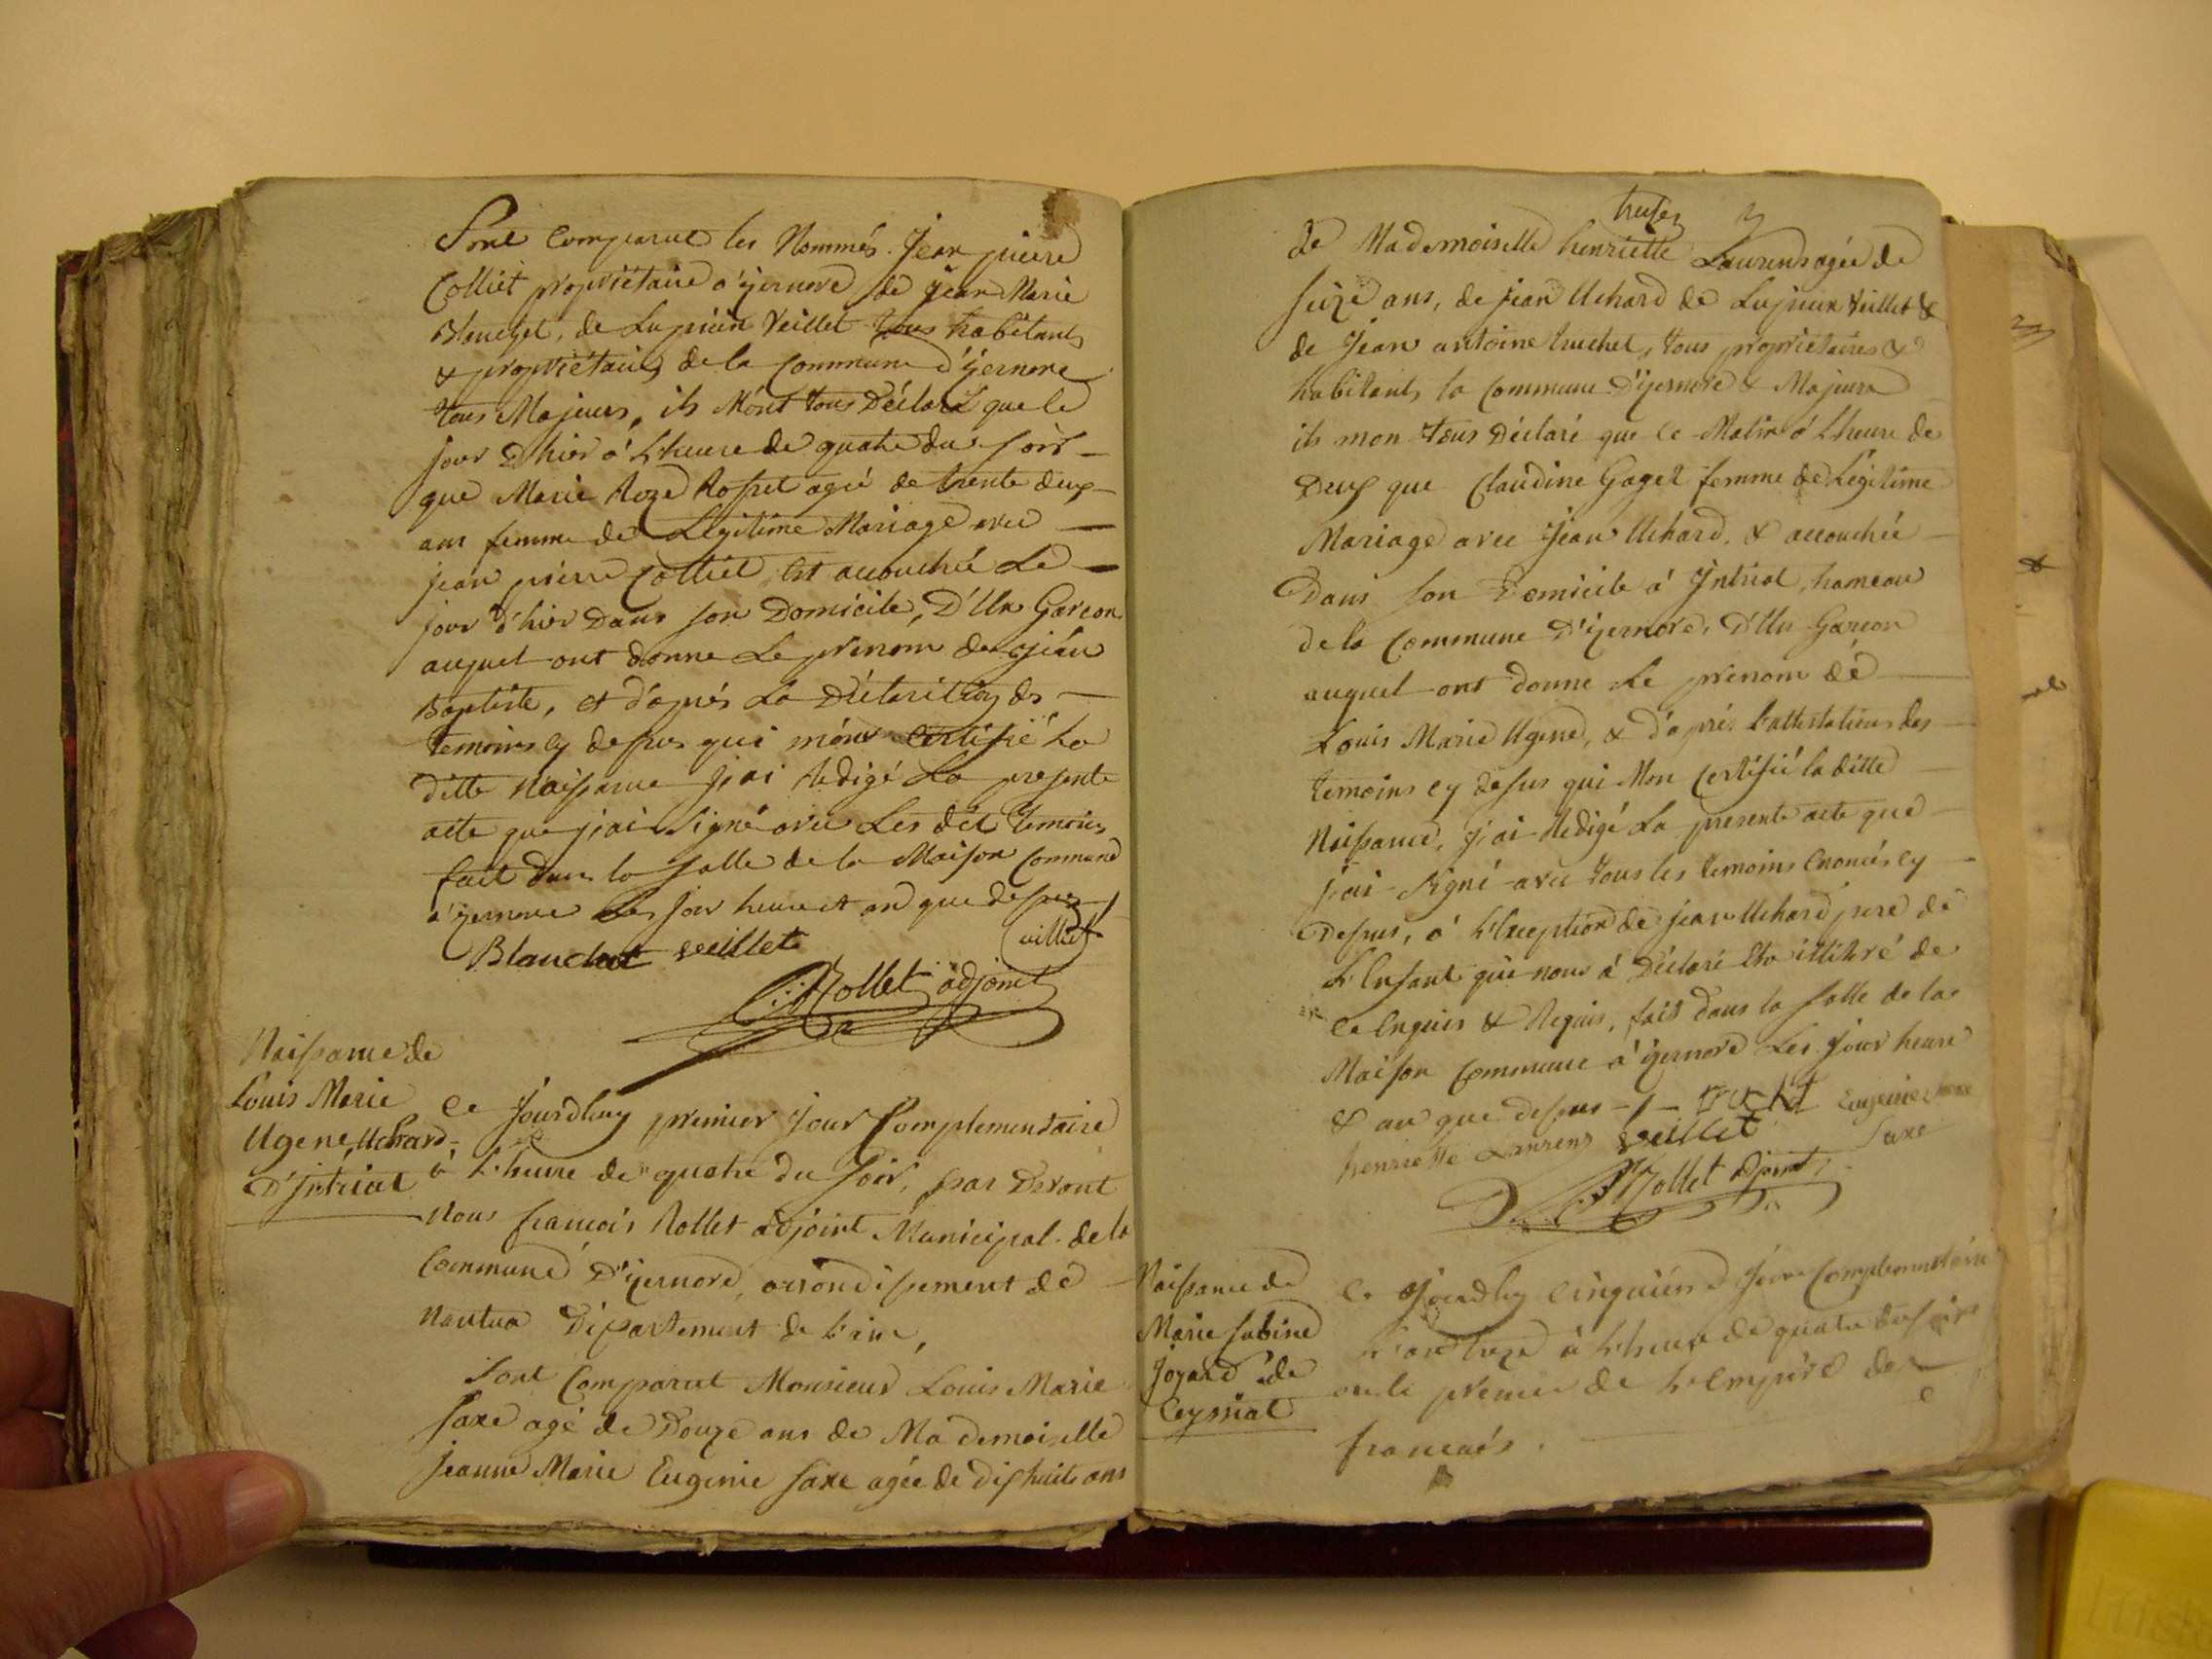 Sont Comparut les Nommés Jean pierre
Colliet propriétaire d'izernore de Jean Marie
Blanchet, de Lupicin Veillet tous habitants
& propriétaires de la Commune d'izernore
tous Majeurs, ils M'ont tous Déclaré que le
jour D'hier à L'heure de quatre du soir
que Marie Roze Rosset agée de trente deux
ans femme de Légitime Mariage avec
jean pierre Colliet est accouchée Le
jour d'hier Dans son Domicile, D'Un Garcon
auquel ont donne Le prenom de jean
Baptiste, et d'après La Déclaration des
temoins cy dessus qui m'ont certifié La
ditte Naissance j'ai Redigé La presente
acte que j'ai signé avec Les dit temoins
fait dans la salle de la Maison Commune
a izernore Les jour heure et an que dessus
Blanchet veillet
Rollet adjoint
Naissance de
Louis Marie
Ugene, Uchard
D'Intriat
Ce Jourdhuy premier Jour Complementaire
à L'heure de quatre du Soir, par Devant
Nous francois Rollet adjoint Municipal de la
Commune D'izernore, arrondissement de
Nantua Département de L'ain,
Sont Comparut Monsieur Louis Marie
Saxe agé de Douze ans de Mademoiselle
Jeanne Marie Eugenie Saxe agée de dix huit ans
de Mademoiselle henriette Laurens agée de
seize ans, de jean Uchard de Lupicin Veillet &
de Jean antoine truchet, tous propriétaires &
habitants la Commune D'izernore & Majeurs
ils mon tous Déclaré que Ce Matin à L'heure de
Deux que Claudine Gaget femme de Légitime
Mariage avec Jean Uchard, & accouchée
Dans son Domicile à Intriat, hameau
de la Commune D'izernore, D'Un Garcon
auquel ont donne Le prenom de
Louis Marie Ugene, & d'après L'attestations des
temoins cy dessus qui Mon Certifié la ditte
Naissance, j'ai Redigé La presente acte que
j'ai Signé avec tous les temoins Enoncés cy
Dessus, à L'Exception de jean Uchard pere de
L'Enfant qui nous à Déclaré Etre illitéré de
Ce Enquis & Requis, fait dans la salle de la
Maison Commune à izernore Les Jour heure
& an que dessus truchet Eugenie Saxe
henriette Laurens veillet Saxe
Rollet adjoint
Naissance de
Marie Sabine
Joyard de
Ceyssiat
Ce Jourdhuy Cinquiéme Jour Complementaire
L'an treze à L'heure de quatre du soir
ou le premier de L'Empire des
francais.